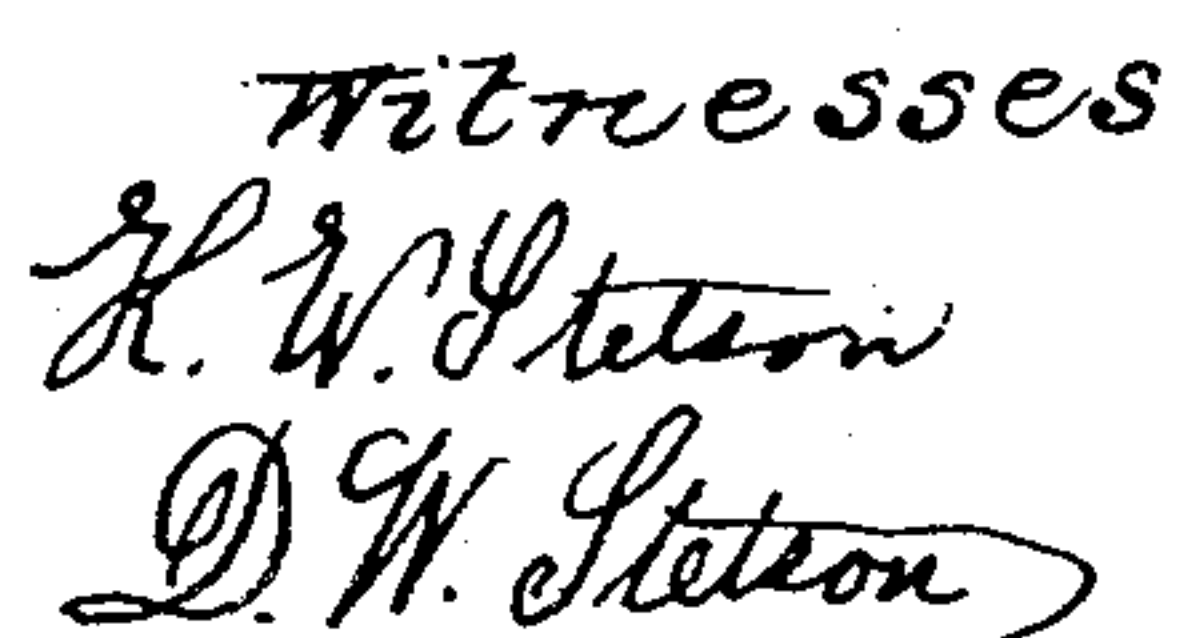 Witnesses
H. W. Stetson
D. W. Stetson